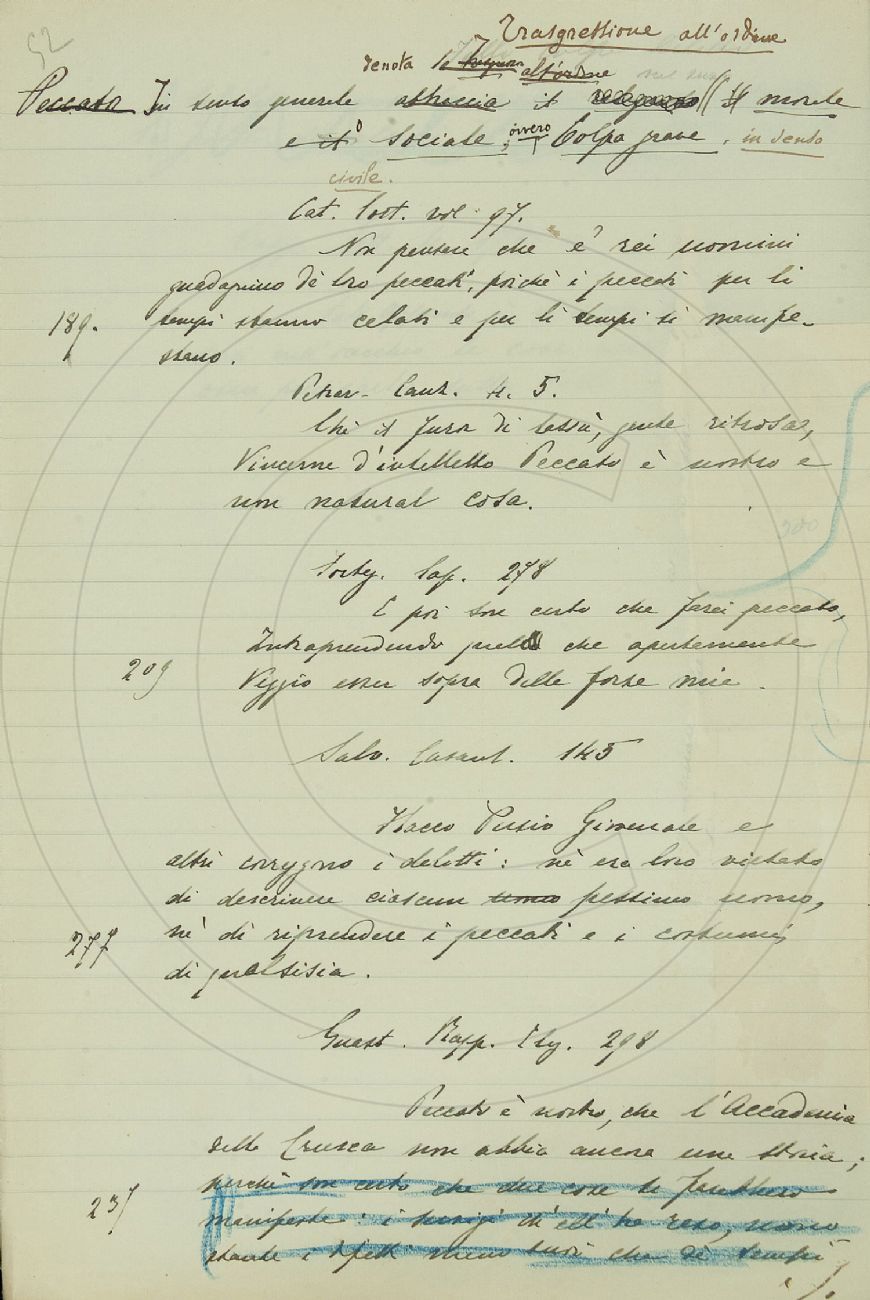 52
Trasgressione all'ordine
denota la all'ordine
Peccato In senso generale abbraccia il morale
e il sociale, ovvero Colpa grave. in senso
civile.
Cat. Cost. vol. 97.
Non pensare che e' rei uomini
guadagnino de' loro peccati, poichè i peccati per li
189. tempi stanno celati e per li tempi si manife-
stano.
Petrar. Canz. 4. 5.
Chè il furor di lassù, gente ritrosa,
Vincerne d'intelletto Peccato è nostro e
non natural cosa.
300
Forteg. Cap. 278
E poi son certo che farei peccato,
Intraprendendo quello che apertamente
209 Veggio esser sopra delle forze mie.
Salv. Casaub. 145
Flacco Persio Giovenale e
altri corregono i delitti: nè era loro vietato
di descrivere ciascun uomo pessimo uomo,
277 nè di riprendere i peccati e i costumi,
di qualsisia.
Guast. Rapp. 298
Peccato è nostro, che l'Accademia
della Crusca non abbia ancora una storia;
237 perchè son certo che due cose si farebbero
manifeste: i servigi ch'ell'ha reso, nono
stante i difetti meno suoi che de' tempi